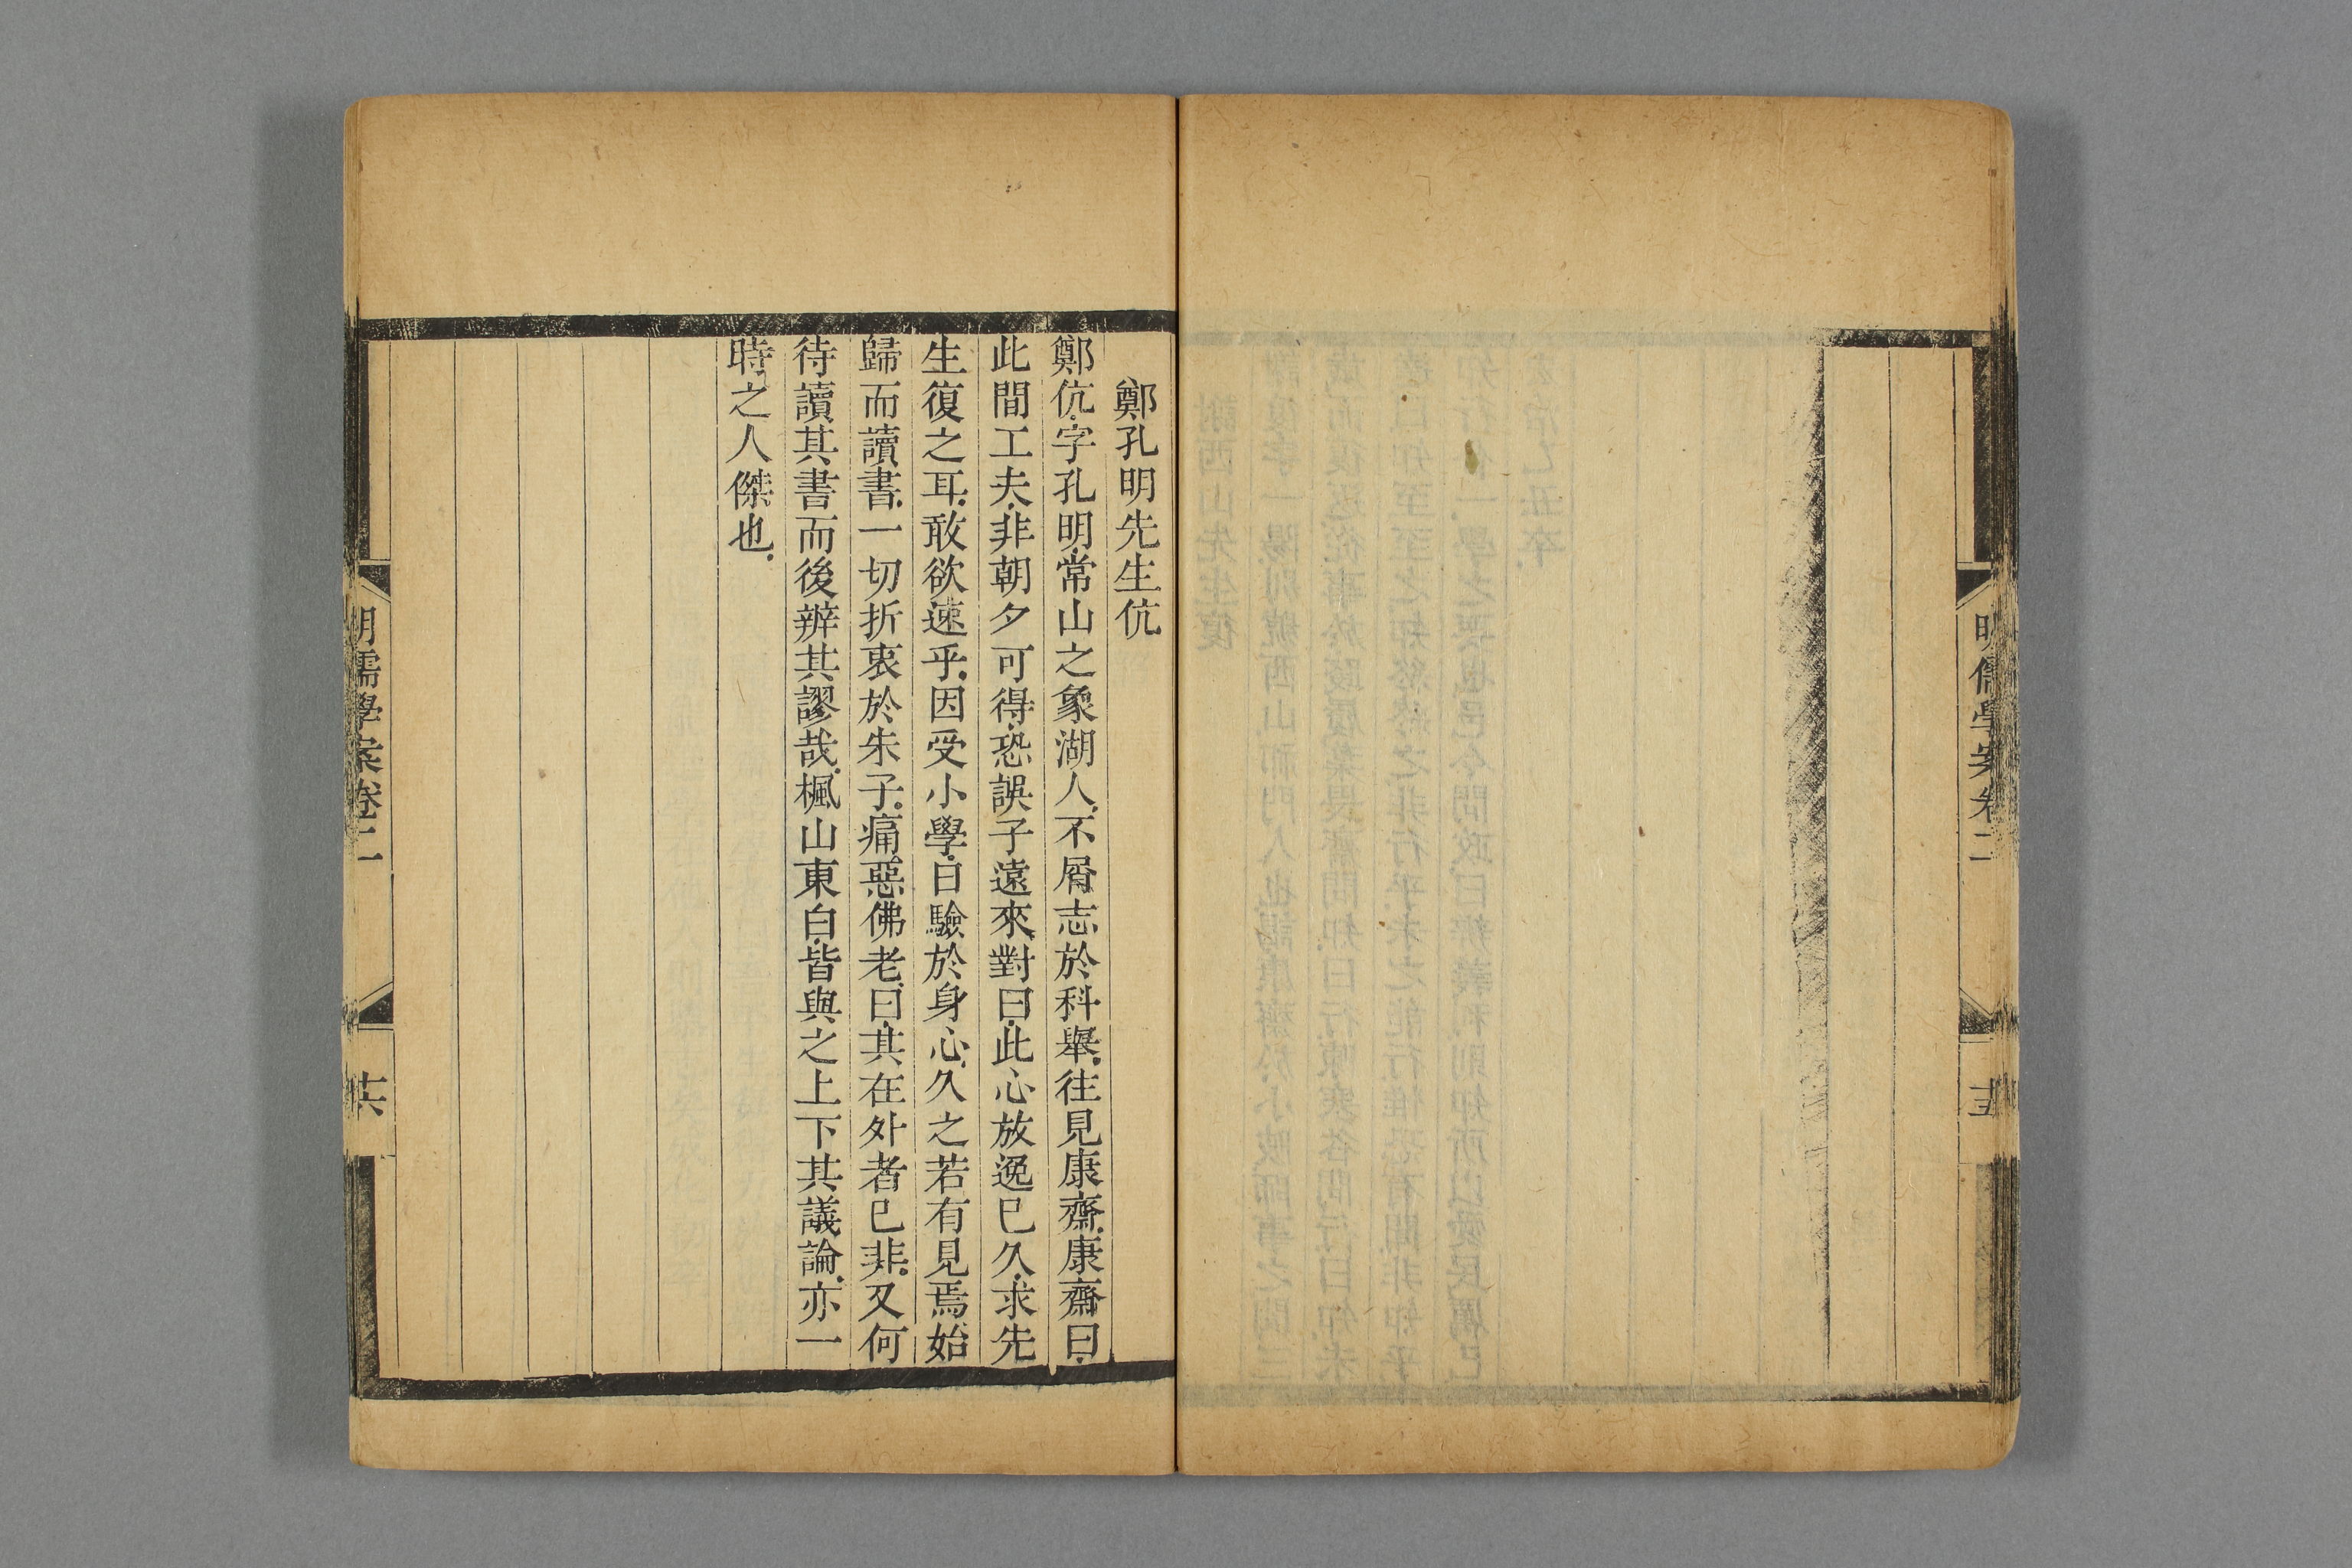 明儒學案卷二
十五
鄭孔明先生伉
鄭伉字孔明常山之象湖人不屑志於科舉往見康齋康齋曰
此間工夫非朝夕可得恐誤子遠來對曰此心放逸已久求先
生復之耳敢欲速乎因受小學日驗於身心久之若有見焉始
歸而讀書一切折衷於朱子痛惡佛老曰其在外者已非又何
待讀其書而後辨其謬哉楓山東白皆與之上下其議論亦一
時之人傑也
明儒學案卷二
十六